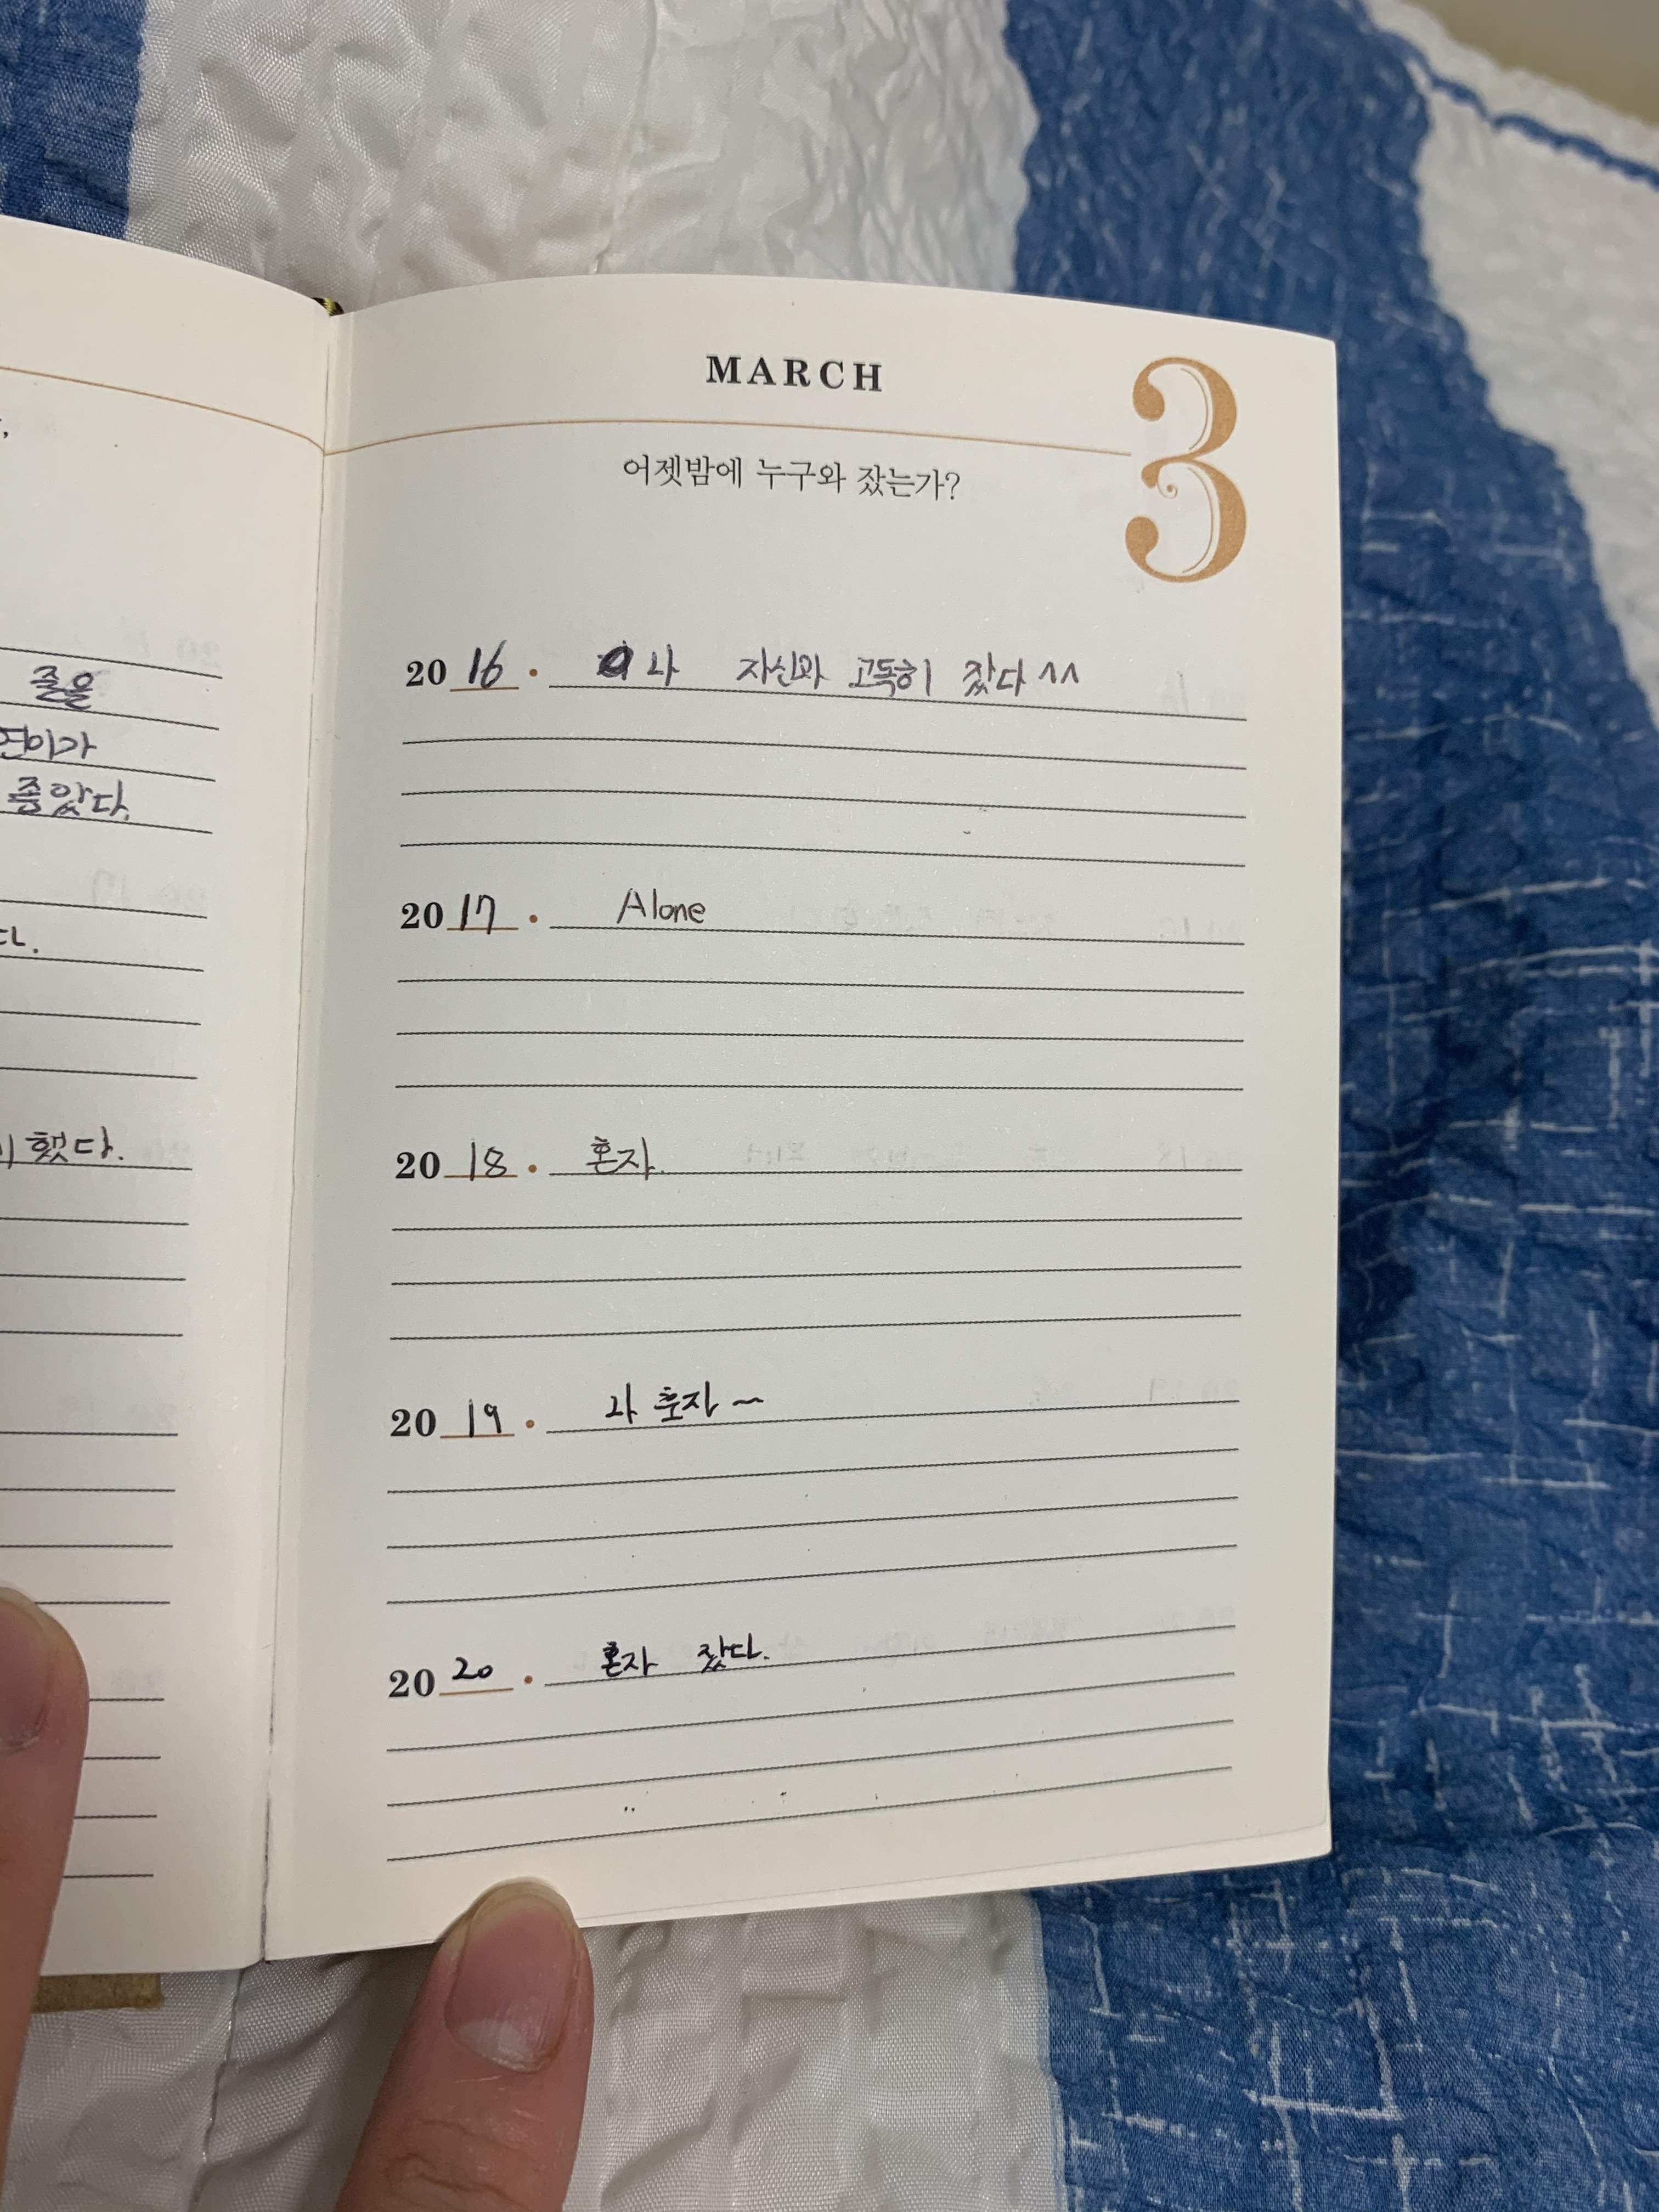 졸을
연이가
좋았다.
다.
했다.
MARCH 3
어젯밤에 누구와 잤는가?
2016 · 나 자신과 고독히 잤다 ^^
2017 · Alone
2018 · 혼자.
2019 · 나 혼자~
2020 · 혼자 잤다.